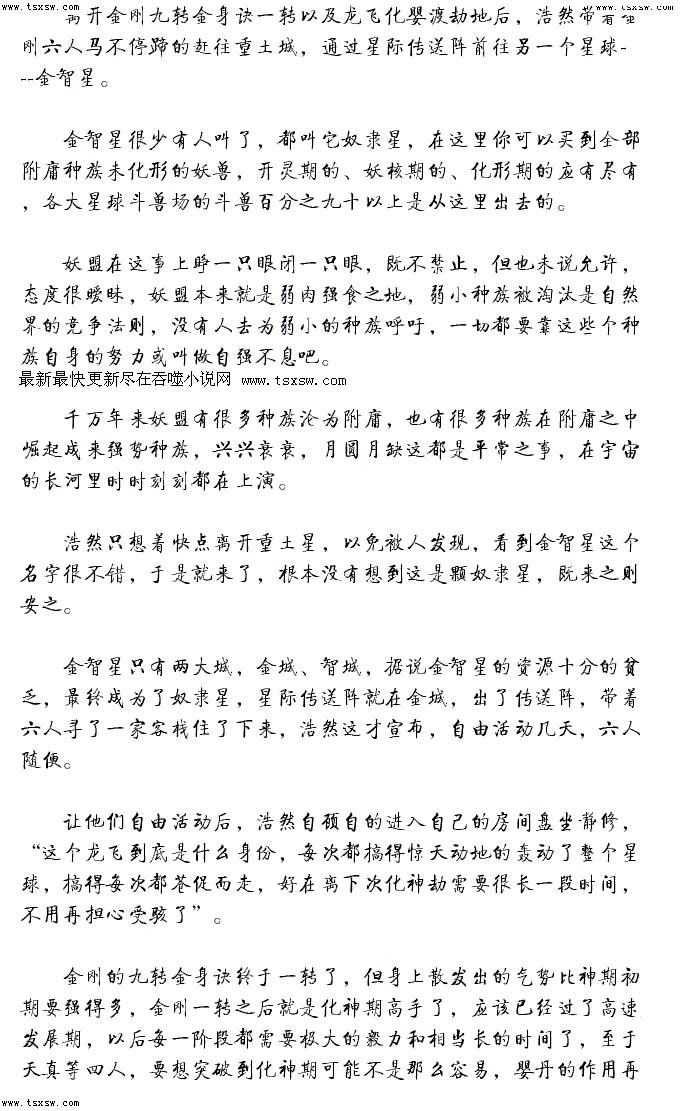 www.tsxsw.com www.tsxsw.com
离开金刚九转金身诀一转以及龙飞化婴渡劫地后，浩然带着金
刚六人马不停蹄的赶往重土城，通过星际传送阵前往另一个星球-
--金智星。
金智星很少有人叫了，都叫它奴隶星，在这里你可以买到全部
附庸种族未化形的妖兽，开灵期的、妖核期的、化形期的应有尽有
，各大星球斗兽场的斗兽百分之九十以上是从这里出去的。
妖盟在这事上睁一只眼闭一只眼，既不禁止，但也未说允许，
态度很暧昧，妖盟本来就是弱肉强食之地，弱小种族被淘汰是自然
界的竞争法则，没有人去为弱小的种族呼吁，一切都要靠这些个种
族自身的努力或叫做自强不息吧。
最新最快更新尽在吞噬小说网 www.tsxsw.com
千万年来妖盟有很多种族沦为附庸，也有很多种族在附庸之中
崛起成来强势种族，兴兴衰衰，月圆月缺这都是平常之事，在宇宙
的长河里时时刻刻都在上演。
浩然只想着快点离开重土星，以免被人发现，看到金智星这个
名字很不错，于是就来了，根本没有想到这是颗奴隶星，既来之则
安之。
金智星只有两大城，金城、智城，据说金智星的资源十分的贫
乏，最终成为了奴隶星，星际传送阵就在金城，出了传送阵，带着
六人寻了一家客栈住了下来，浩然这才宣布，自由活动几天，六人
随便。
让他们自由活动后，浩然自顾自的进入自己的房间盘坐静修，
“这个龙飞到底是什么身份，每次都搞得惊天动地的轰动了整个星
球，搞得每次都苍促而走，好在离下次化神劫需要很长一段时间，
不用再担心受骇了”。
金刚的九转金身诀终于一转了，但身上散发出的气势比神期初
期要强得多，金刚一转之后就是化神期高手了，应该已经过了高速
发展期，以后每一阶段都需要极大的毅力和相当长的时间了，至于
天真等四人，要想突破到化神期可能不是那么容易，婴丹的作用再
www.tsxsw.com www.tsxsw.com